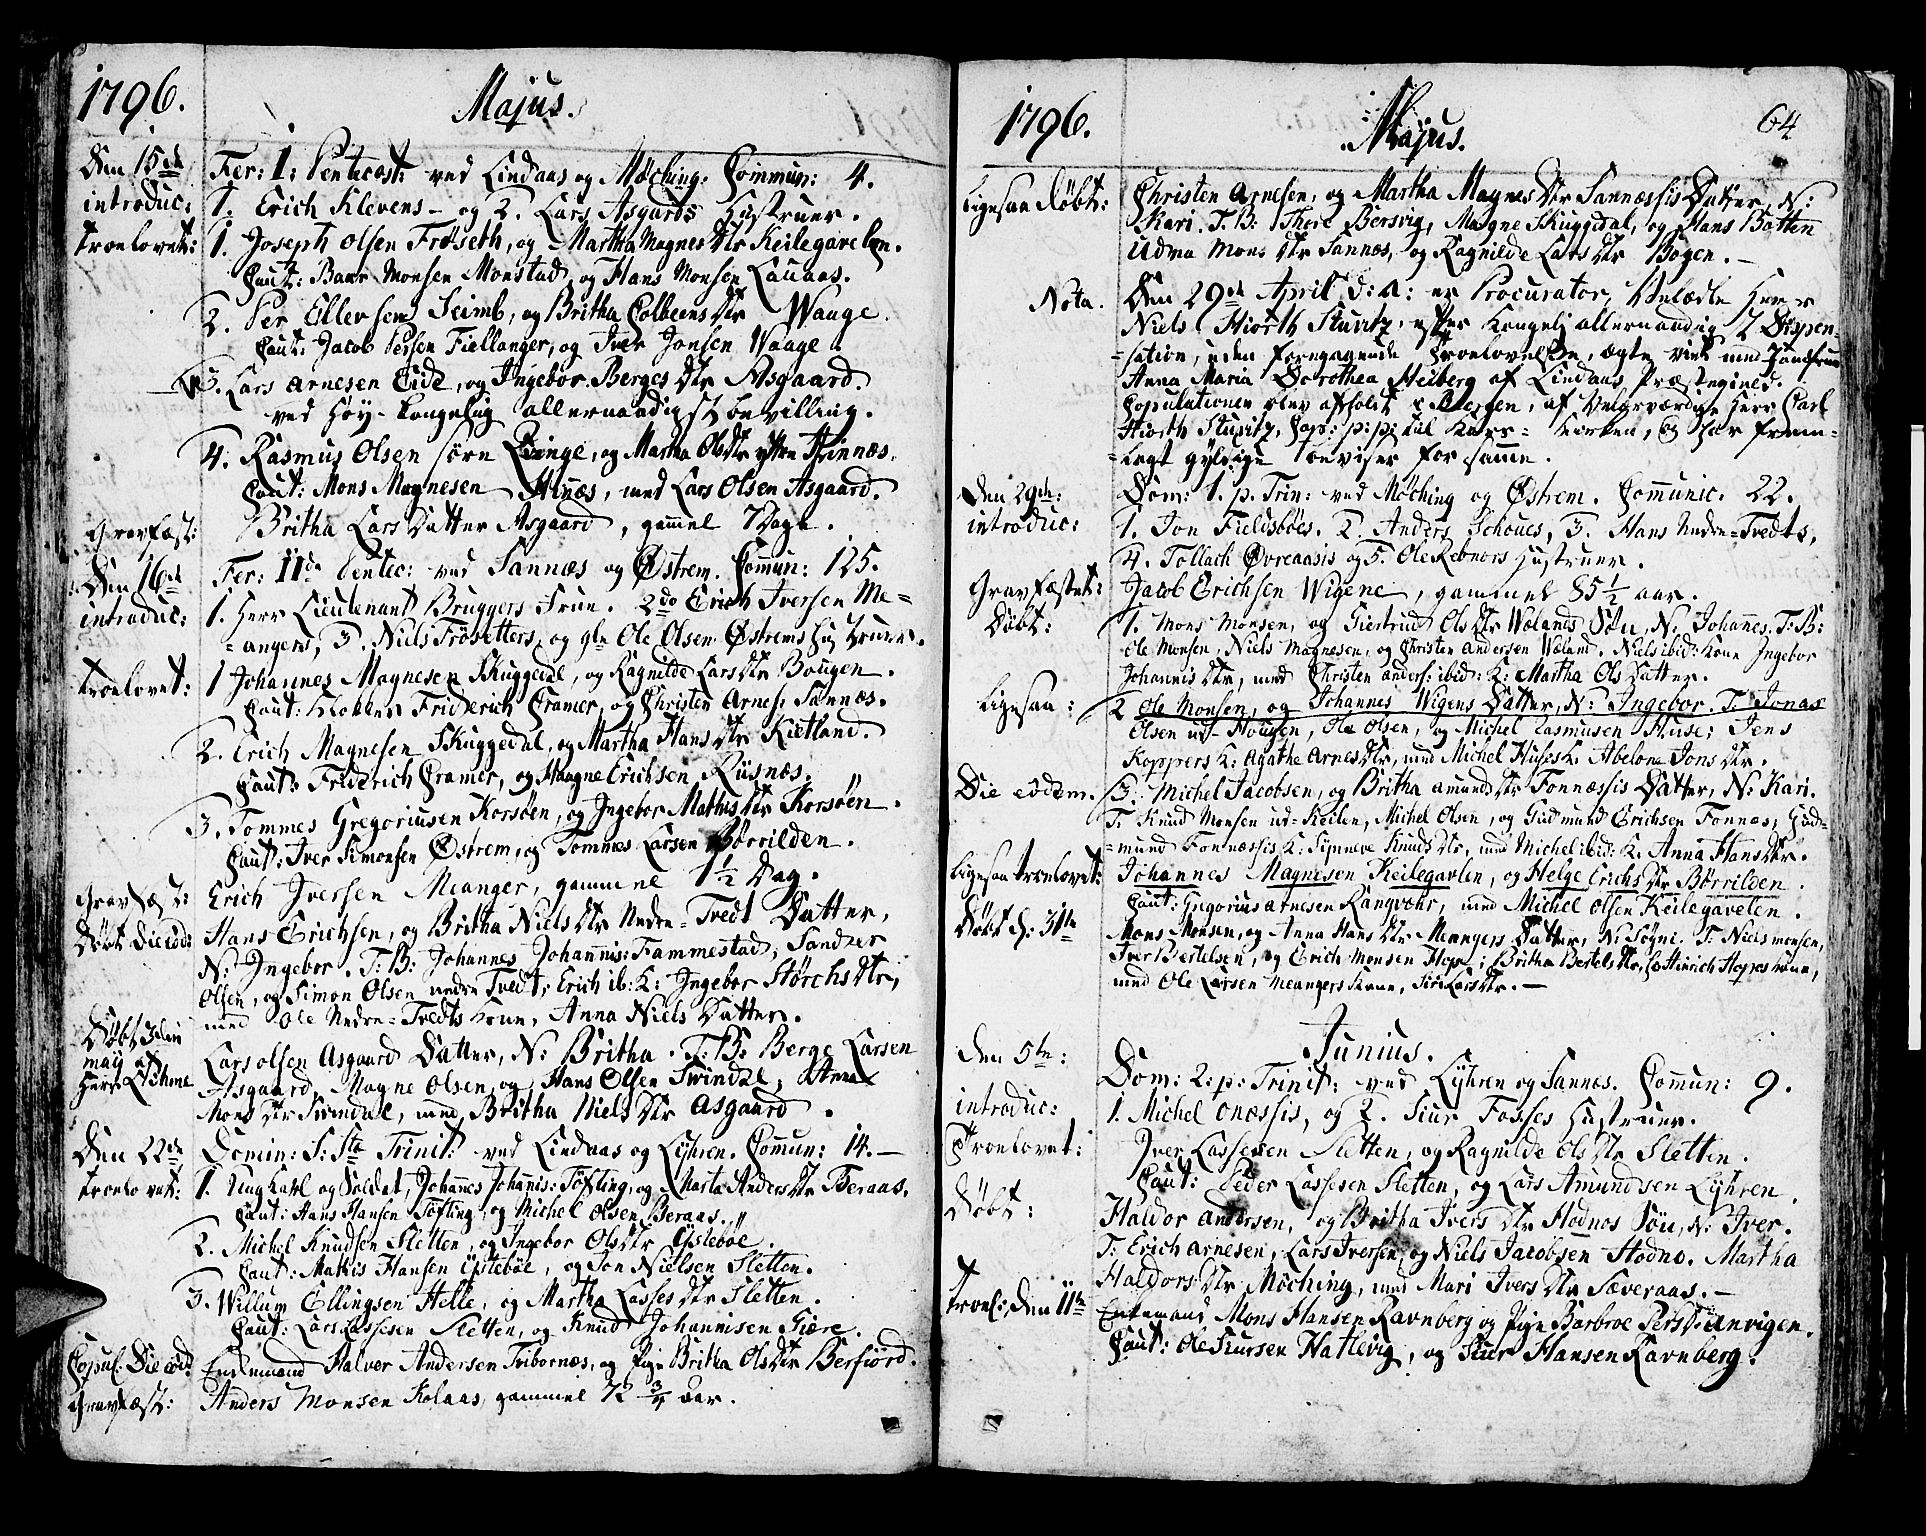 1796. Majus.
Den 15de Fer: 1: Pentecost: ved Lindaas og Møching. Commun: 4.
introduc: 1. Erich Klevens – og 2. Lars Asgards Hustruer.
troelovet: 1. Joseph Olsen Frøseth, og Martha Magnes Dtr Keilegavelen.
Caut: Baar Monsen Monstad, og Hans Monsen Lauaas.
2. Per Ellensen Seimb, og Britha Colbeens Dtr Waage.
Caut: Jacob Persen Fiellanger, og Iver Jonsen Waage.
3. Lars Arnesen Eide, og Ingebor Berges Dtr Asgaard.
ved Høy-kongelig allernaadigst bevilling.
4. Rasmus Olsen sørn Qvinge, og Martha Ols Dtr yttre Hinnæs.
Caut: Mons Magnesen Hinæs, med Lars Olsen Asgaard.
Gravfæst: Britha Lars Datter Asgaard, gammel 7 Dage.
Den 16de Fer: IIde Pentec: ved Sannæs og Østrem. Commun: 125.
introduc: 1. Herr Lieutenant Bruggers Frue. 2do Erich Iversen Me=
=angers, 3. Niels Frøsetters, og gle Ole Olsen Østrems Hustruer.
troelovet: 1 Johannes Magnesen Skuggedal, og Ragnilde Lars Dtr Bougen.
Caut: Klokker Friderich Cramer, og Christen Arnes: Sannæs.
2. Erich Magnesen Skuggedal, og Martha Hans Dtr Kietland.
Caut: Friderich Cramer, og Maagne Erichsen Riisnæs.
3. Tommes Gregoriusen Korsöen, og Ingebor Mathis Dtr Korsöen.
Caut: Iver Simonsen Østrem, og Tommes Larsen Börrilden.
Gravfæst: Erich Iversen Meanger, gammel 1½ Dag.
Døbt Die eod: Hans Erichsen, og Britha Niels Dtr Nedre-Tvedt Datter,
N: Ingebor. T: B: Johannes Johannis: Fammestad, Sandser
Olsen, og Simon Olsen nedre Tvedt, Erich ib: K: Ingebor Störchs Dtr,
med Ole Nedre-Tvedts Kone, Anna Niels Datter.
Døbt 3den Lars Olsen Asgaard Datter, N: Britha. T: B: Berge Larsen
maij af Asgaard, Magne Olsen, og Hans Olsen Svindal, Anna
Herr Mons Dtr Svindal, med Britha Niels Dtr Asgaard.
Den 22de Domin: S: Stæ Trinit: ved Lindaas og Lÿhren. Comun: 14. –
troelovet: 1. Ungkarl og Soldat, Johannes Johannis: Töfting, og Marta Anders Dtr Beraas.
Caut: Hans Hansen Töfting, og Michel Olsen Beraas.
2. Michel Knudsen Sletten, og Ingebor Ols Dtr Øÿsteböe.
Caut: Mathis Hansen Öÿstebøe, og Jon Nielsen Sletten.
3. Willum Ellingsen Helle, og Martha Lasses Dtr Sletten.
Caut: Lars Lassesen Sletten, og Knud Johannisen Fiære.
Copul: Die eod: Enkemand Halvor Andersen Fribornæs, og Pige Britha Ols Dtr Berfiörd.
Gravfæst: Anders Monsen Kolaas, gammel 72 ¾ aar.
1796. Majus. 64
Ligesaa Døbt: Christen Arnesen, og Martha Magnes Dtr Sannæssis Datter, N:
Kari. T: B: Thore Borsvig, Magne Skuggedal, og Hans Botten
Udva Mons Dtr Sannæs, og Ragnilde Lars Dtr Bogen. –
Nota. Den 29de April d: a: er Procurator, Velædle Herr
Niels Hiorth Stuvitz, efter kongelig allernaadigst Dispen=
=sation, uden foregagende Troelovelse, ægte viet med Jomfrue
Anna Maria Dorothea Heiberg af Lindaas Præstegield.
Copulationen blev afholdt i Bergen, af Velærværdige Herr Carl
Hiorth Stuvitz, Cap: p: p: til Kaars-Kirken, og har frem=
=lagt gyldige beviser for samme.
Den 29de: Dom: 1. p. Trin: ved Møching og Østrem. Communic: 22.
introduc: 1. Jon Fieldsböes. 2. Anders Schoues, 3. Hans Nedre-Tvedts,
4. Tollach Øvreaasis og 5. Ole Rebnors Hustruer.
Gravfæstet: Jacob Erichsen Wigene, gammel 85½ aar.
Döbt: 1. Mons Monsen, og Giertrud Ols Dtr Wolands Søn, N: Johannes. T: B:
Ole Monsen, Niels Magnesen, og Christen Andersen Woland. Niels ibid: Kone Ingebor
Johannis Dtr, med Christen Anders: ibid: K: Martha Ols Datter.
Ligesaa: 2 Ole Monsen, og Johannis Wigens Datter, N: Ingebor. T: Jonas
Olsen ud-Hougen, Ole Olsen, og Michel Rasmusen Huse; Jens
Koppers K: Agathe Arnes Dtr, med Michel Huses K: Abelone Jons Dtr.
Die eodem. 3. Michel Jacobsen, og Britha Amunds Dtr Fonnæssis Datter, N: Kari.
T: Knud Monsen ud-Keilen, Michel Olsen, og Gudmund Erichsen Fonnæs, Gud=
=mund Fonnæssis K: Synneve Knuds Dtr, med Michel ibid: K: Anna Hans Dtr.
Ligesaa troelovet: Johannes Magnesen Keilegavlen, og Helge Erichs Dtr Børrilden.
Caut: Gregorius Arnesen Rangvohr, med Michel Olsen Keilegavelen.
Døbt d: 31te Mons Monsen, og Anna Hans Dtr Meangers Datter, N: Søgni. T: Niels Monsen,
Iver Bertelsen, og Erich Monsen Hope; Britha Bertels Dtr, Hinrich Hopes kone,
med Ole Larsen Meangers Kone, Siri Lars Dtr. –
Junius.
Den 5te: Dom: 2: p: Trinit: ved Lÿhren og Sannes. Commun: 9.
introduc: 1. Michel Onæssis, og 2. Siur Fosses Hustruer.
Troelovet: Iver Lassesen Sletten, og Ragnilde Ols Dtr Sletten.
Caut: Peder Lassesen Sletten, og Lars Amundsen Lÿhren.
Døbt: Haldor Andersen, og Britha Ivers Dtr Hodnos Søn, N: Iver.
T: Erich Arnesen, Lars Iversen, og Niels Jacobsen Hodno. Martha
Haldors Dtr Møching, med Mari Ivers Dtr Sæveraas. –
Troel: den 11te Enkemand Mons Hansen Ravnberg og Pige Barbroe Pers D: Urvigen.
Caut: Ole Siursen Hatlevig, og Siur Hansen Ravnberg.